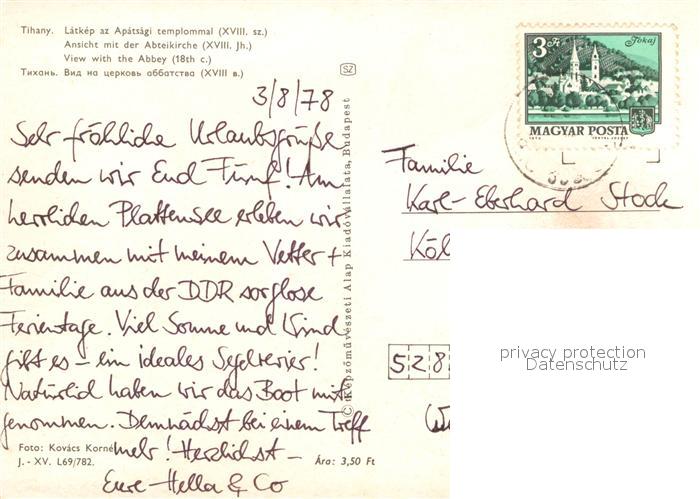 Tihany. Látkép az Apátsági templommal (XVIII. sz.)
Ansicht mit der Abteikirche (XVIII. Jh.)
View with the Abbey (18th c.)
Тихань. Вид на церковь аббатства (XVIII в.)
SZ
3/8/78
Sehr fröhliche Urlaubsgrüße
senden wir Euch Fünf! Am
herrlichen Plattensee erleben wir
zusammen mit meinem Vetter +
Familie aus der DDR sorglose
Ferientage. Viel Sonne und Wind
gibt es – ein ideales Segelrevier!
Natürlich haben wir das Boot mit
genommen. Demnächst bei einem Treff
mehr! Herzlichst –
Eure Hella & Co
Foto: Kovács Korné
J. - XV. L69/782.
Ára: 3,50 Ft
© Képzőművészeti Alap Kiadóvállalata, Budapest
3 Ft
Tokaj
MAGYAR POSTA
Familie
Karl-Eberhard Stock
Köl
528
privacy protection
Datenschutz